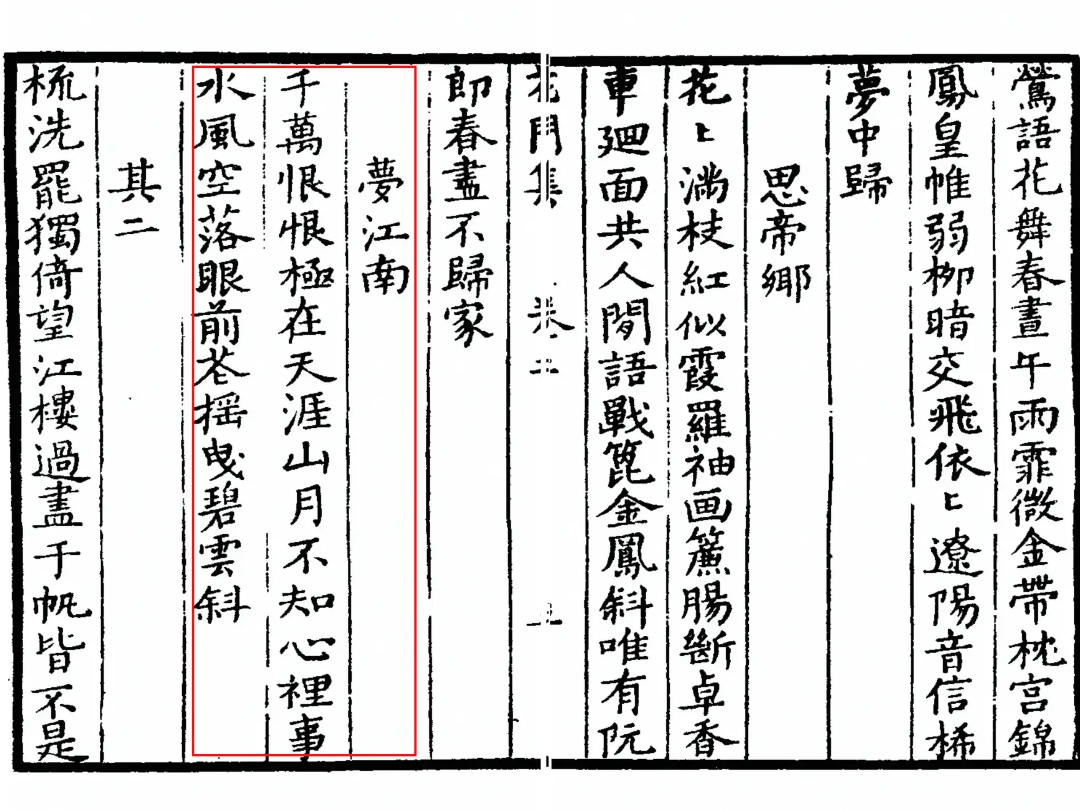 鶯語花舞春晝午雨霏微金帶枕宫錦
鳳皇帷弱栁暗交飛依〻遼陽音信稀
夢中歸
思帝鄉
花〻滿枝紅似霞羅袖画簾腸斷卓香
車廻面共人閒語戰篦金鳳斜唯有阮
郎春盡不歸家
花間集 卷二
夢江南
千萬恨恨極在天涯山月不知心裡事
水風空落眼前花摇曵碧雲斜
其二
梳洗罷獨倚望江樓過盡千帆皆不是